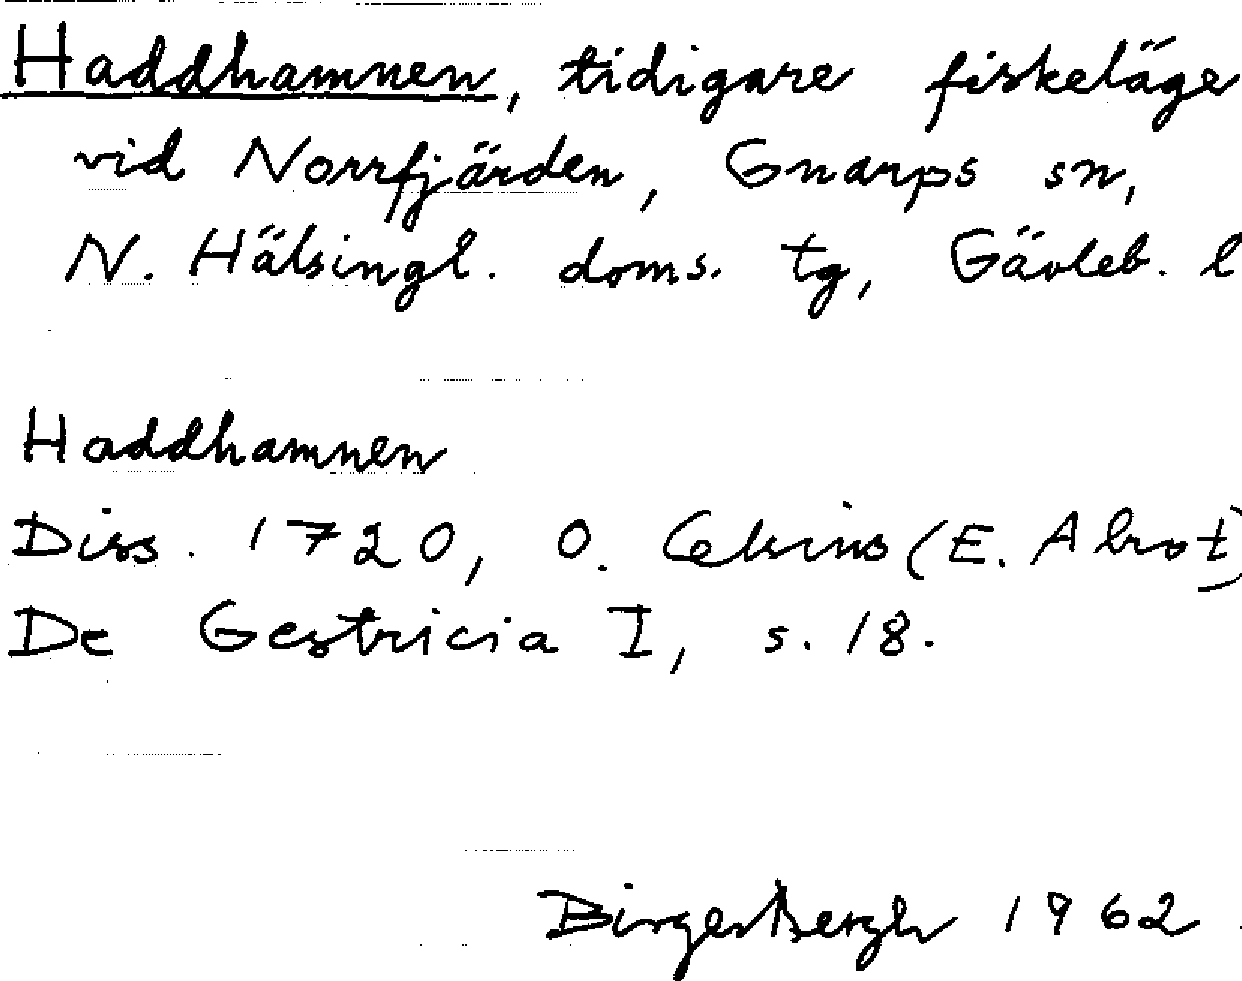 Haddhamnen, tidigare fiskeläge
vid Norrfjärden, Gnarps sn,
N. Hälsingl. doms. tg, Gävleb. l
Haddhamnen
Diss. 1720, O. Celsius (E. Alrot)
De Gestricia I, s. 18.
Birger Bergh 1962